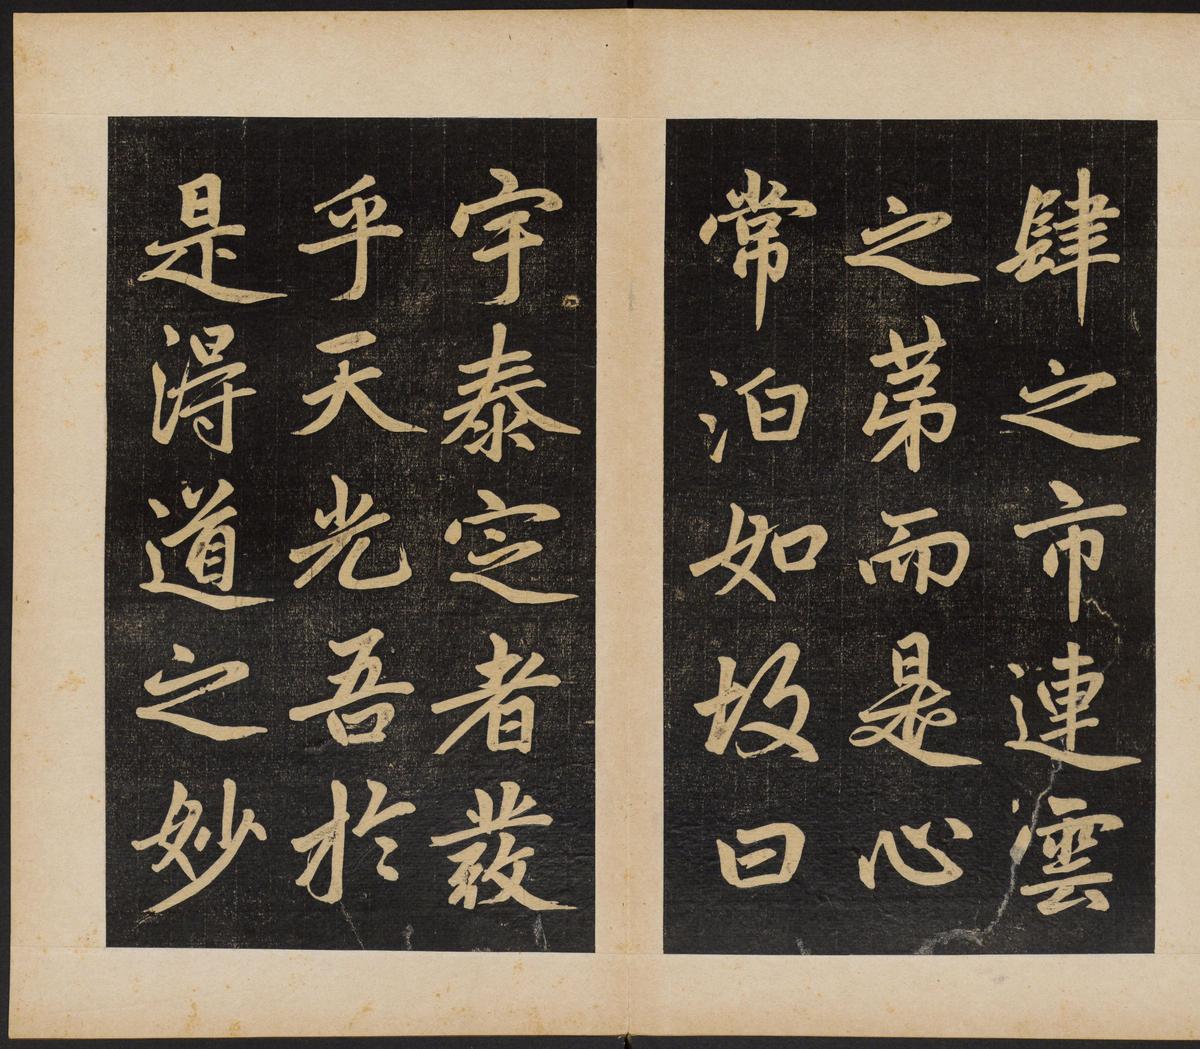 肆之市連雲
之苐而是心
常泊如圾曰
宇泰定者發
乎天光吾於
是淂道之妙